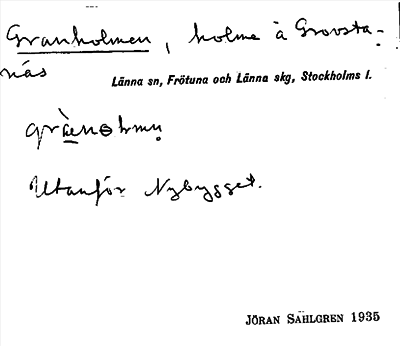 Granholmen, holme à Grovsta-
näs
Länna sn, Frötuna och Länna skg, Stockholms l.
Utanför Nybygget.
JÖRAN SAHLGREN 1935